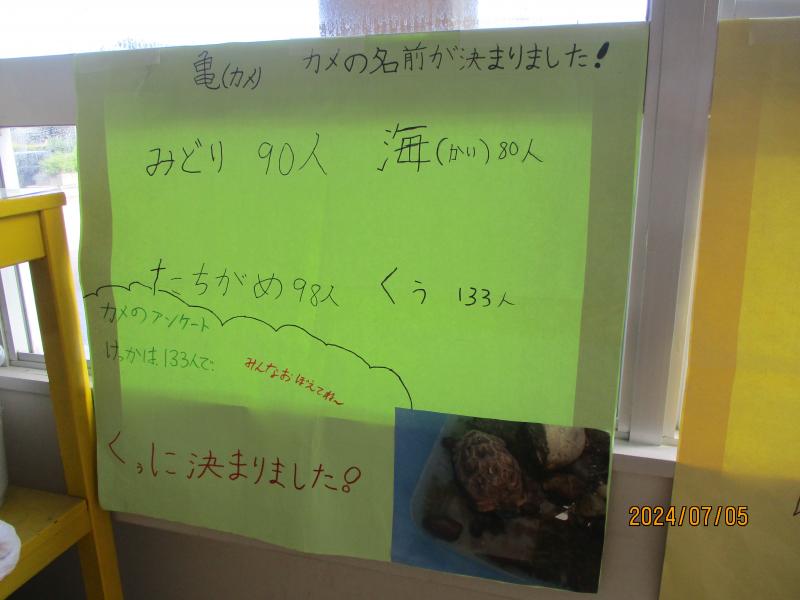 亀(カメ) カメの名前が決まりました!
みどり 90人 海(かい)80人
たちがめ98人 くぅ 133人
カメのアンケート
けっかは、133人で、
みんなおぼえてね〜
くぅに決まりました!
2024/07/05